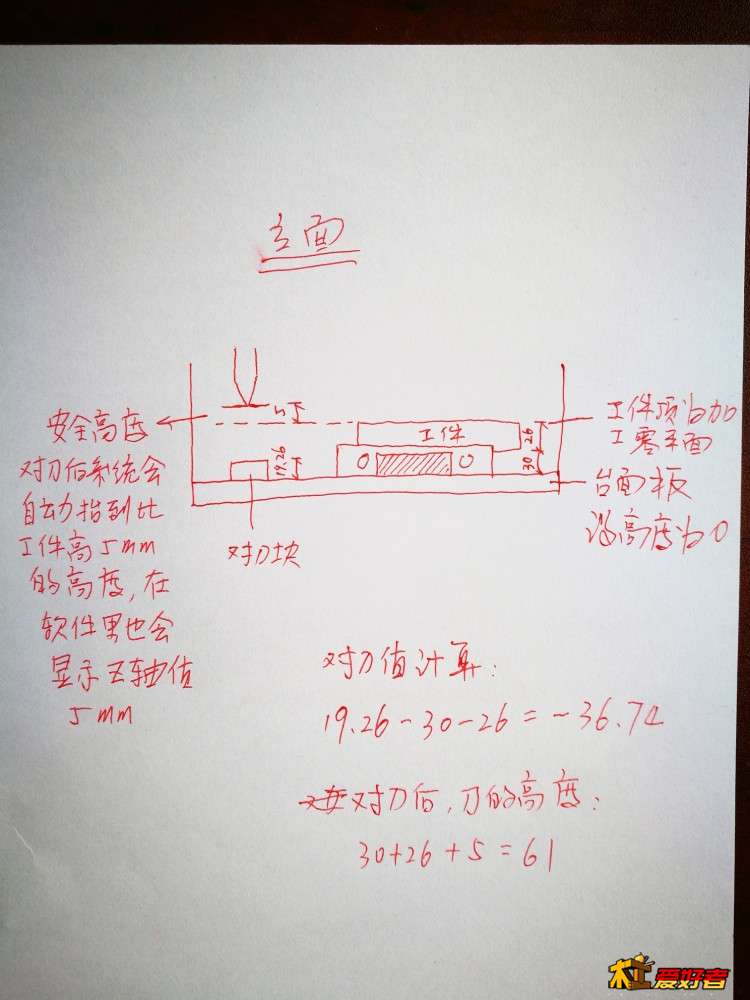 主面
安全高度
对刀后系统会
自动抬到比
工件高5mm
的高度,在
软件里也会
显示Z轴值
5mm
5
工件
19.26
30
26
对刀块
工件顶为加
工零平面
台面板
设高度为0
对刀值计算:
19.26-30-26=-36.74
对刀后,刀的高度:
30+26+5=61
木工爱好者